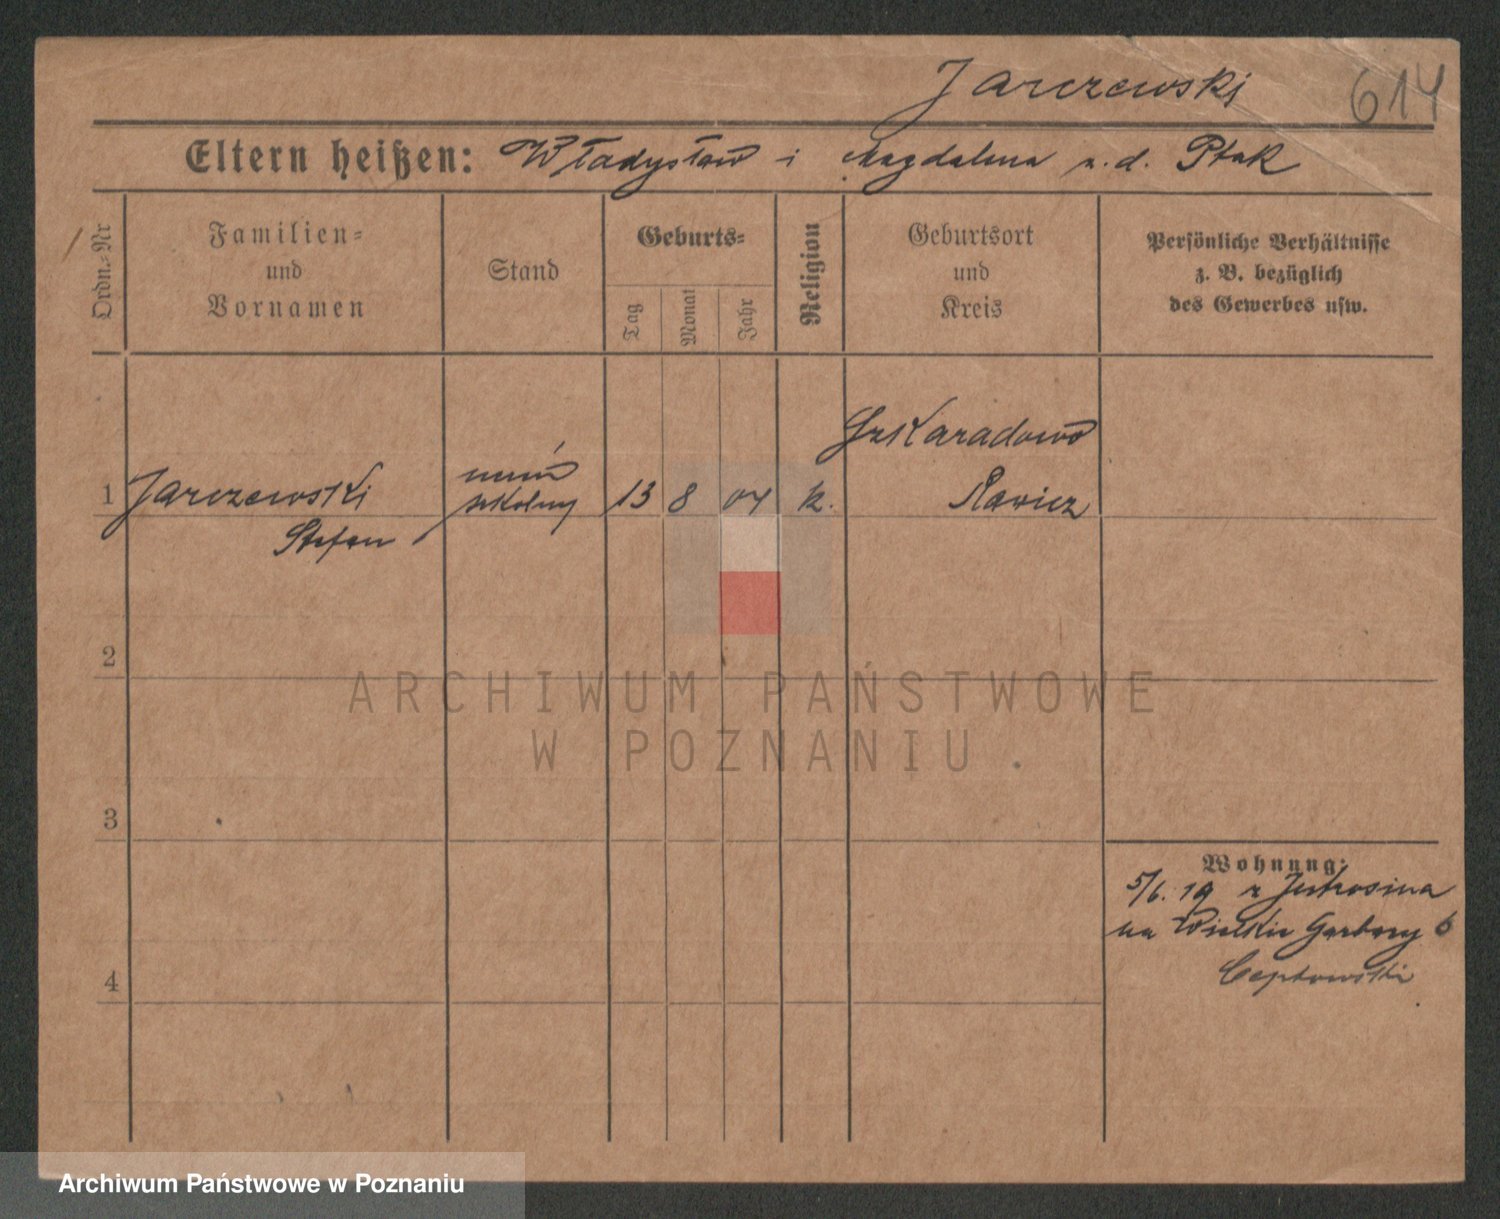 Jarczewski 614
Eltern heißen: Władysław i Magdalena z. d. Ptak
Ordn.-Nr
Familien-
und
Vornamen
Stand
Geburts-
Tag
Monat
Jahr
Religion
Geburtsort
und
Kreis
Persönliche Verhältnisse
z. B. bezüglich
des Gewerbes usw.
1 Jarczewski
Stefan
uczeń
szkolny
13 8 04 k.
Szkaradowo
Rawicz
2
3
4
Wohnung:
5/6. 19 z Jutrosina
na Wielkie Garbary 6
ARCHIWUM PAŃSTWOWE
W POZNANIU
Archiwum Państwowe w Poznaniu